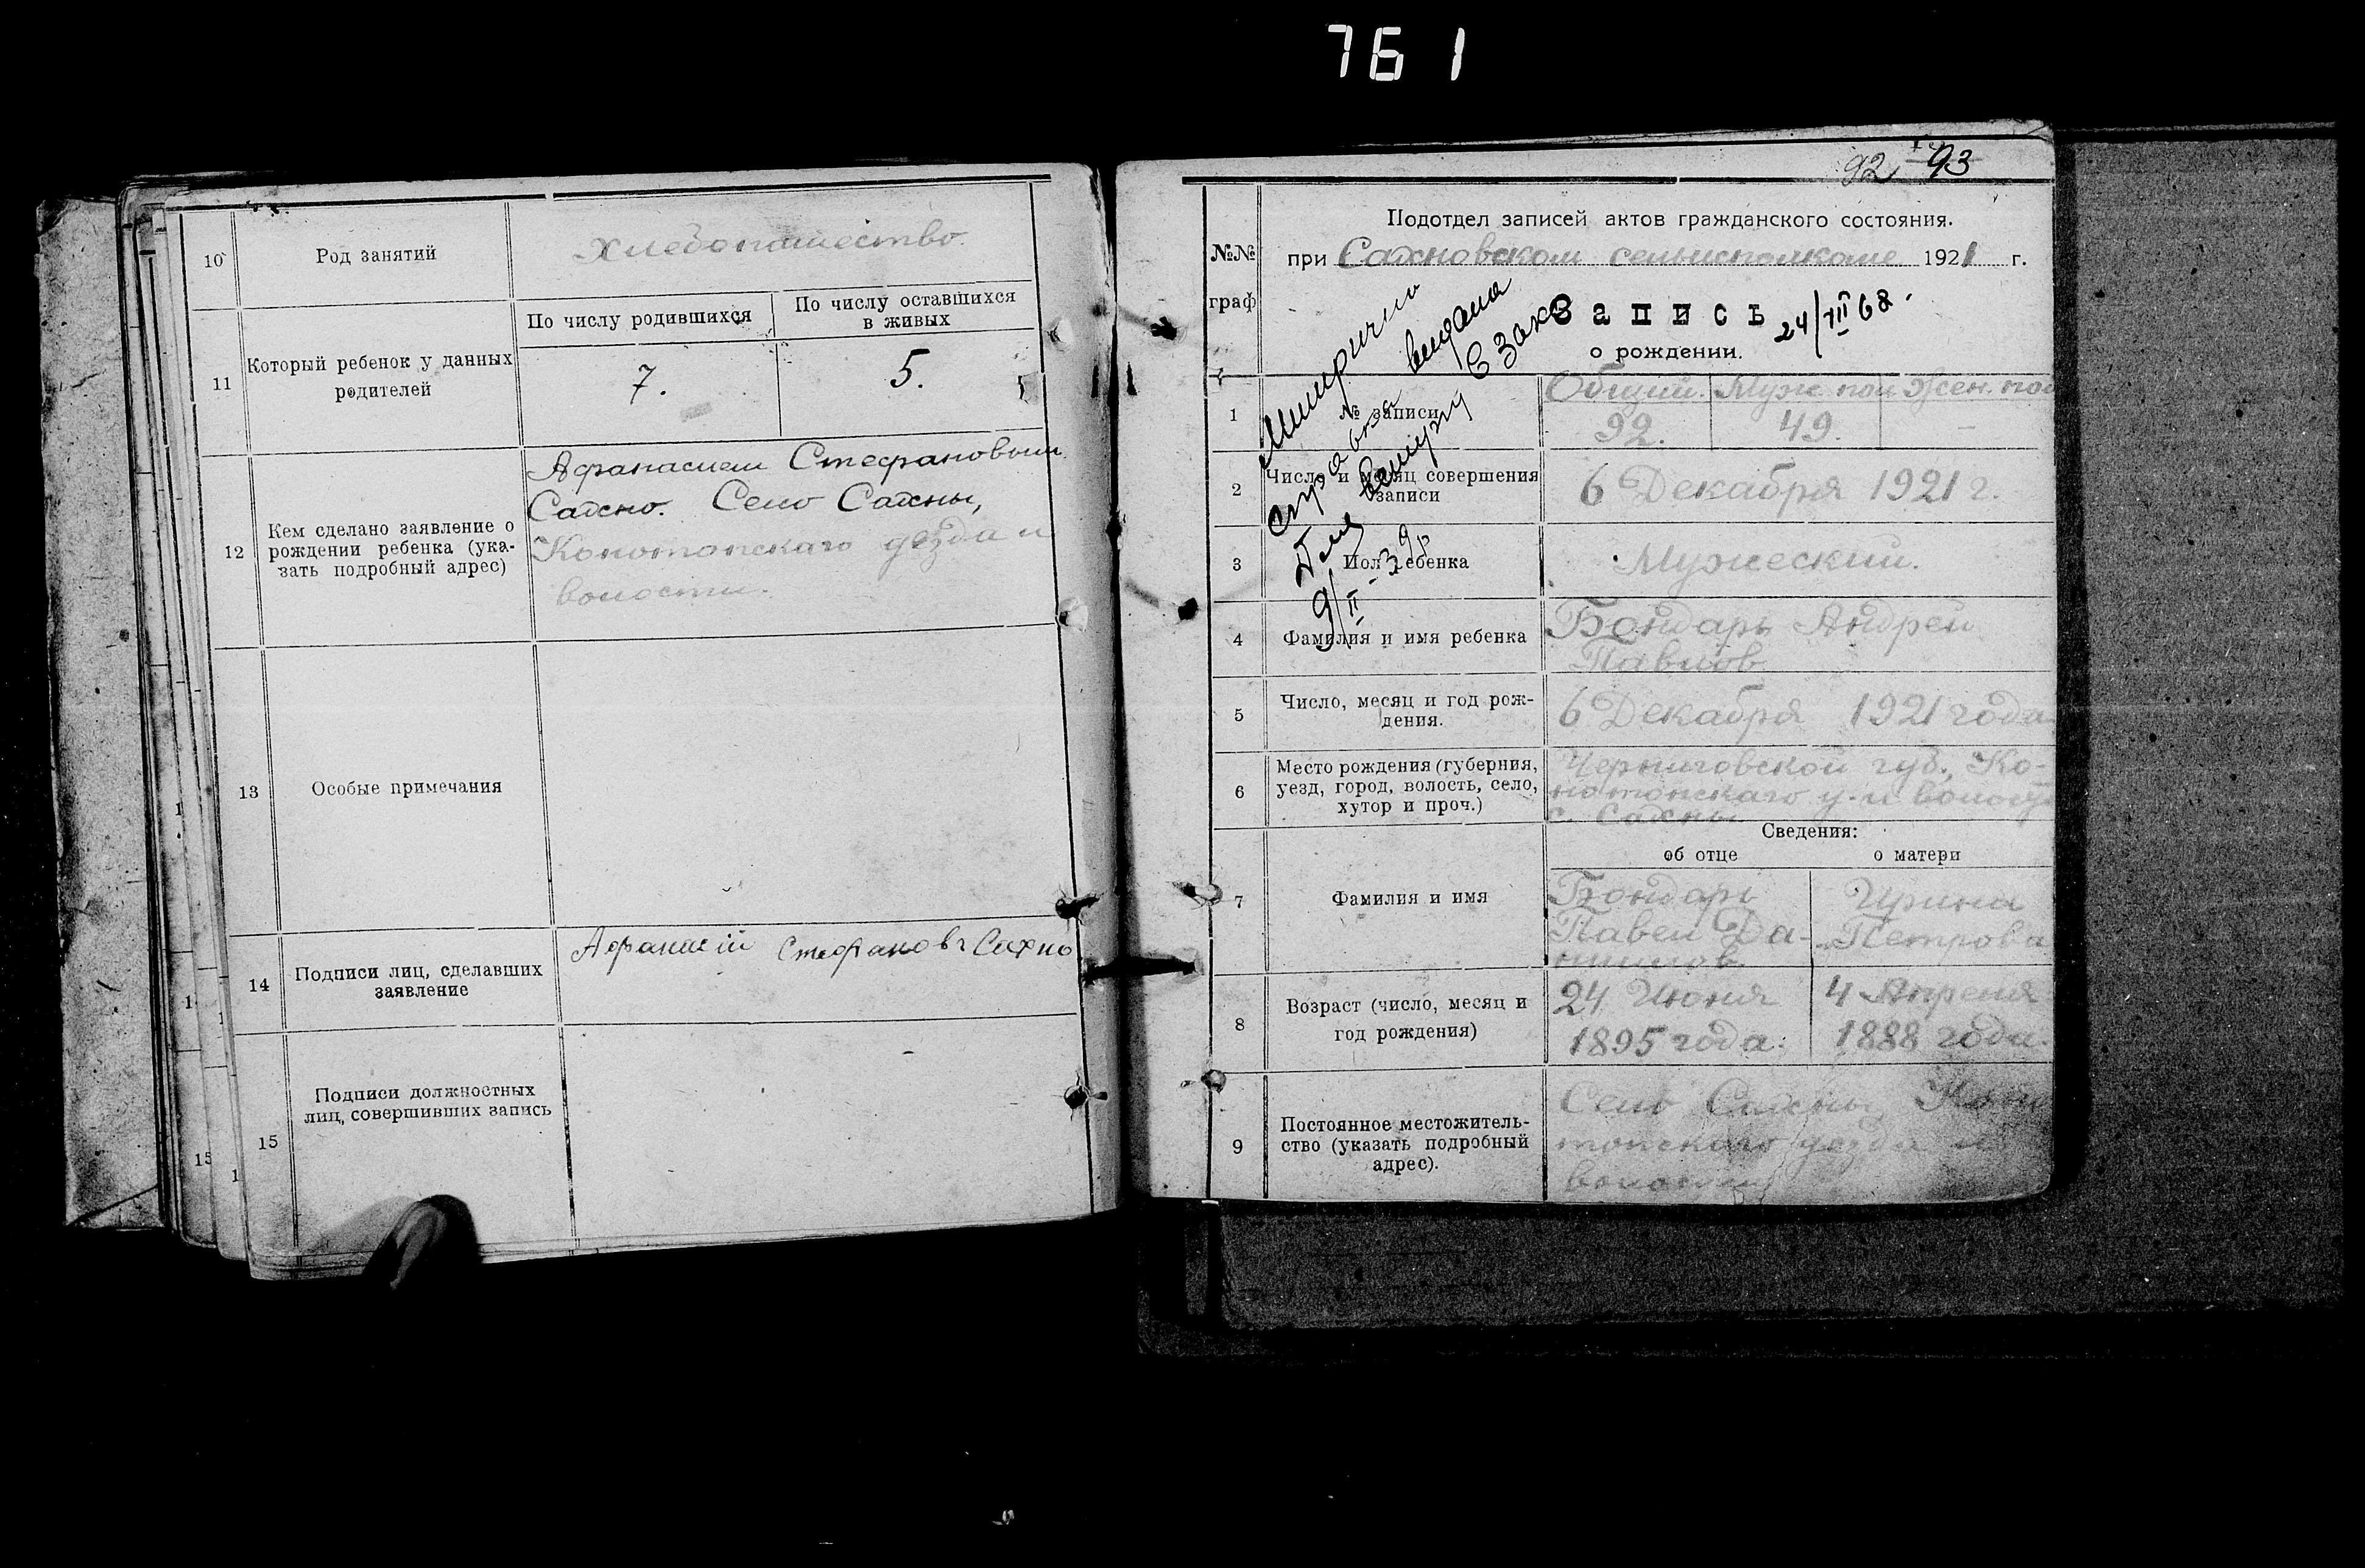 761
10
Род занятий
Хлебопашество.
11
Который ребенок у данных
родителей
По числу родившихся
По числу оставшихся
в живых
7.
5.
12
Кем сделано заявление о
рождении ребенка (ука-
зать подробный адрес)
Афанасием Стефановым
Сахно. Село Сахны,
Конотопскаго уезда и
волости.
13
Особые примечания
14
Подписи лиц, сделавших
заявление
Афанасій Стефановъ Сахно
15
Подписи должностных
лиц, совершивших запись
92 93
№№
граф
Подотдел записей актов гражданского состояния.
при Сахновском сельисполкоме 1921 г.
Запись
24/VII 68.
о рождении.
справка видана
9/II-39р
1
№ записи
Общий. Муж. пол Жен. пол
92. 49. -
2
Число и месяц совершения
записи
6 Декабря 1921 г.
3
Пол ребенка
Мужеский.
4
Фамилия и имя ребенка
Бондарь Андрей
Павлов
5
Число, месяц и год рож-
дения.
6 Декабря 1921 года
6
Место рождения (губерния,
уезд, город, волость, село,
хутор и проч.)
Черниговской губ., Ко-
нотопскаго у. и волости
с. Сахны
Сведения:
об отце
о матери
7
Фамилия и имя
Бондарь
Павел Да-
нилов
Ирина
Петрова
8
Возраст (число, месяц и
год рождения)
24 Июня
1895 года.
4 Апреля
1888 года.
9
Постоянное местожитель-
ство (указать подробный
адрес).
Село Сахны, Коно
топскаго уезда и
волости